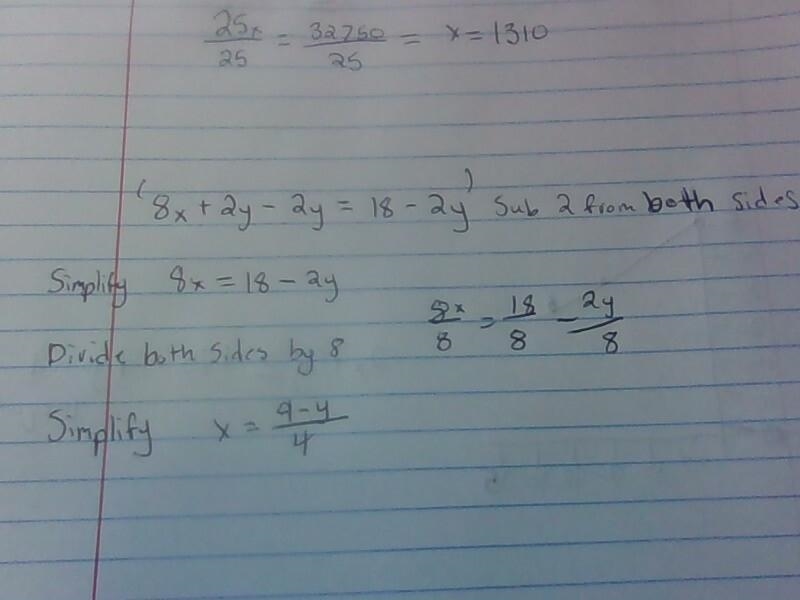 25x/25 = 32750/25 = x = 1310
(8x + 2y - 2y = 18 - 2y) Sub 2 from both sides
Simplify 8x = 18 - 2y
8x/8 = 18/8 - 2y/8
Divide both sides by 8
Simplify x = 9-y/4